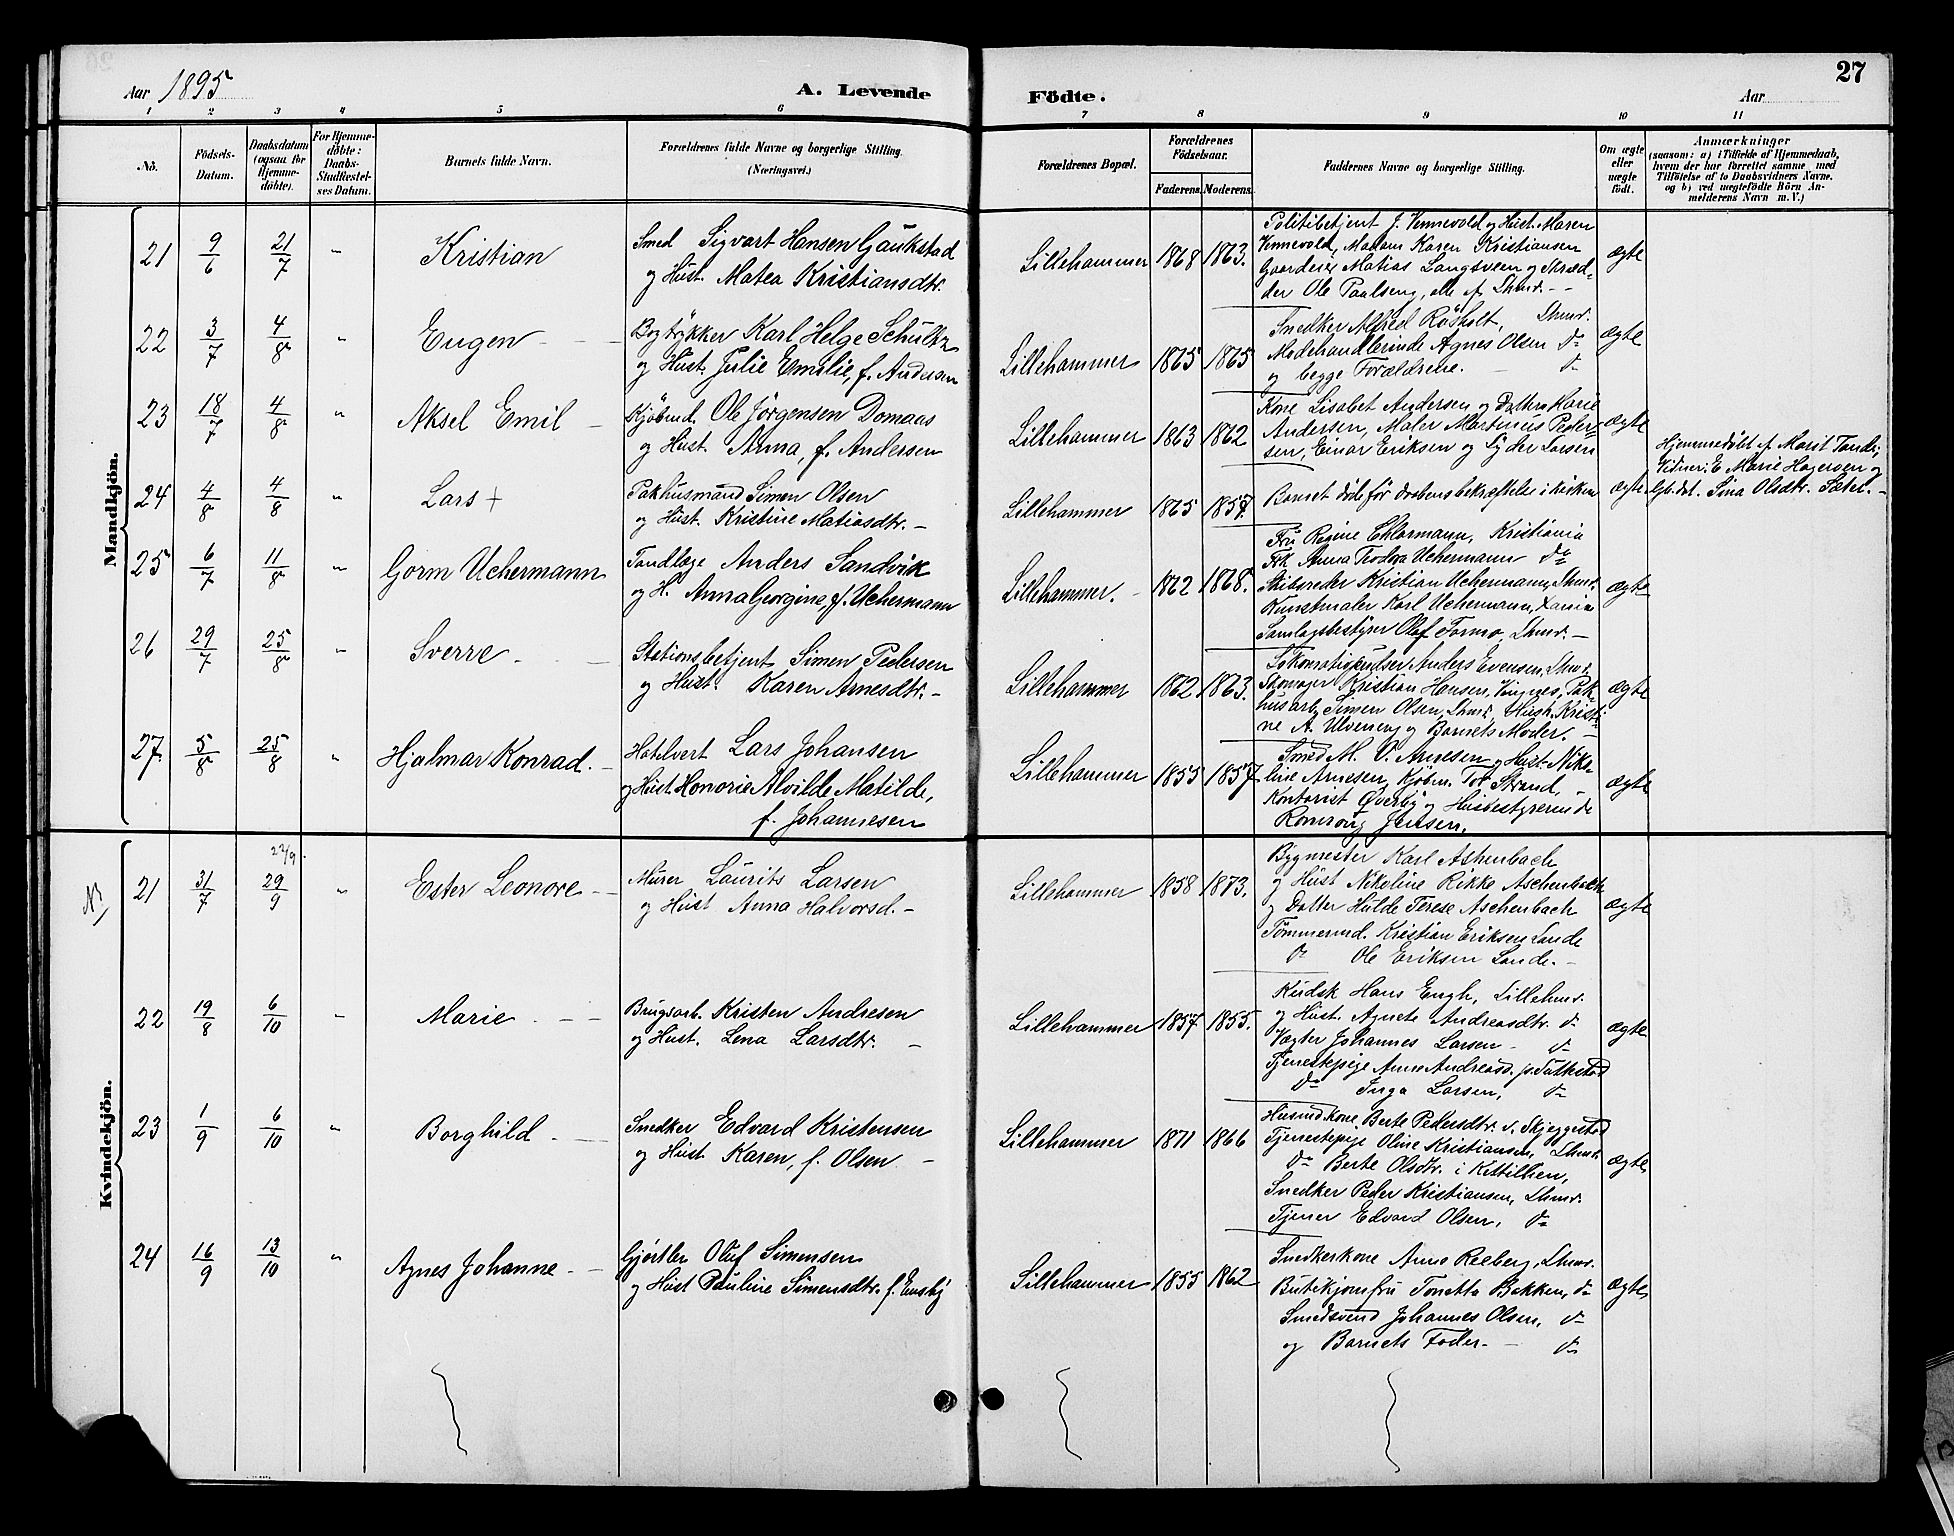 27
Aar 1895
A. Levende Födte.
Aar
1 2 3 4 5 6 7 8 9 10 11
No.
Födsels-Datum.
Daabsdatum (ogsaa for Hjemme-döbte).
For Hjemme-döbte: Daabs-Stadfæstelses Datum.
Barnets fulde Navn.
Forældrenes fulde Navne og borgerlige Stilling. (Næringsvei.)
Forældrenes Bopæl.
Forældrenes Födselsaar.
Faderens. Moderens.
Faddernes Navne og borgerlige Stilling.
Om ægte eller uægte födt.
Anmærkninger
(saasom: a) i Tilfælde af Hjemmedaab,
hvem der har forrettet samme med
Tilföielse af to Daabsvidners Navne.
og b) ved uægtefödte Börn An-
melderens Navn m. V.)
Mandkjön.
21 9/6 21/7 " Kristian
Smed Sigvart Hansen Gaukstad
og Hust. Matea Kristiansdtr.
Lillehammer 1868 1863.
Politibetjent J. Vennevold og Hust. Maren
Vennevold, Madam Karen Kristiansen
Gaardeier Matias Langsveen og Skræd-
der Ole Paulseng, alle af Lhmr. - -
ægte
22 3/7 4/8 " Eugen
Bogtrykker Karl Helge Schultz
og Hust. Julie Emilie, f. Andersen
Lillehammer 1865 1865
Snedker Alfred Rösholt, Lhmr.
Modehandlerinde Agnes Olsen do
og begge Forældrene. - do
ægte
23 18/7 4/8 " Aksel Emil
Kjöbmd. Ole Jörgensen Domaas
og Hust. Anna, f. Andersen
Lillehammer 1863 1862
Kone Lisabet Andersen og Datter Marie
Andersen, Maler Martinius Peder-
sen, Einar Eriksen og Syder Larsen
ægte
24 4/8 4/8 " Lars +
Pakhusmand Simen Olsen
og Hust. Kristine Matiasdtr. -
Lillehammer 1865 1857.
Barnet döde för daabens bekræftelse i kirken
ægte
Hjemmedöbt af Marit Tande;
Vidner: E. Marie Hageroen og
Sina Olsdtr. Sætel. -
25 6/7 11/8 " Gorm Uchermann
Tandlæge Anders Sandvik
og H. Anna Georgine, f. Uchermann
Lillehammer. 1862 1868.
Fru Regine Ehlormann, Kristiania
Frk Anna Teodora Uchermann do
Skibsreder Kristian Uchermann, Lhmr.
Kunstmaler Karl Uchermann, Xania
Samlagsbestyrer Olaf Formo, Lhmr. -
ægte
26 29/7 25/8 " Sverre
Stationsbetjent Simen Pedersen
og Hust. Karen Arnesdtr. -
Lillehammer 1862 1863.
Lokomotivpudser Anders Evensen, Lhmr.
Skomager Kristian Hansen, Vingnes, Pak-
husarb. Simen Olsen, Lhmr., Kristi-
ne A. Ulveneng og Barnets Moder. -
ægte
27. 5/8 25/8 " Hjalmar Konrad.
Hotelvert Lars Johansen
og Hust Honorie Alvilde Matilde,
f. Johannesen
Lillehammer 1855 1857
Smed M. O. Arnesen og Hust. Niko-
line Arnesen, Kjöbm. Tol. Strand,
Kontorist Øverby og Husbestyrerinde
Jensen.
ægte
Kvindekjön.
22/9.
21 31/7 29/9 " Ester Leonore
Murer Laurits Larsen
og Hust Anna Halvorsd. -
Lillehammer 1858 1873.
Bygmester Karl Aschenbach
og Hust Nikoline Rikke Aschenbach
og Datter Hulde Terese Aschenbach
Tömmermd. Kristian Eriksen Lande
do Ole Eriksen Lande. -
ægte
22 19/8 6/10 " Marie
Brugsarb. Kristen Andresen
og Hust. Lena Larsdtr. -
Lillehammer 1857. 1855.
Kudsk Hans Engh, Lillehmr.
og Hust. Agnete Andreasdtr. do
Vægter Johannes Larsen - do
Tjenestepige Anne Andreasd.
do Inga Larsen, do
ægte
23 1/9 6/10 " Borghild
Snedker Edvard Kristensen
og Hust. Karen, f. Olsen -
Lillehammer 1871 1866
Husmdkone Berte Pedersdtr. v. Skjeggestad
Tjenestepige Oline Kristiansen, Lhmr.
do Berte Olsdtr. i Kittillien,
Snedker Peder Kristiansen, Lhmr.
Tjener Edvard Olsen, do
ægte
24 16/9 13/10 " Agnes Johanne
Gjörtler Oluf Simensen
og Hust Pauline Simensdtr. f. Ensby
Lillehammer 1855 1862
Snedkerkone Anne Reeberg, Lhmr.
Butikjomfru Tonette Bakken, do
Smedsvend Johannes Olsen, do
og Barnets Fader. - do
ægte